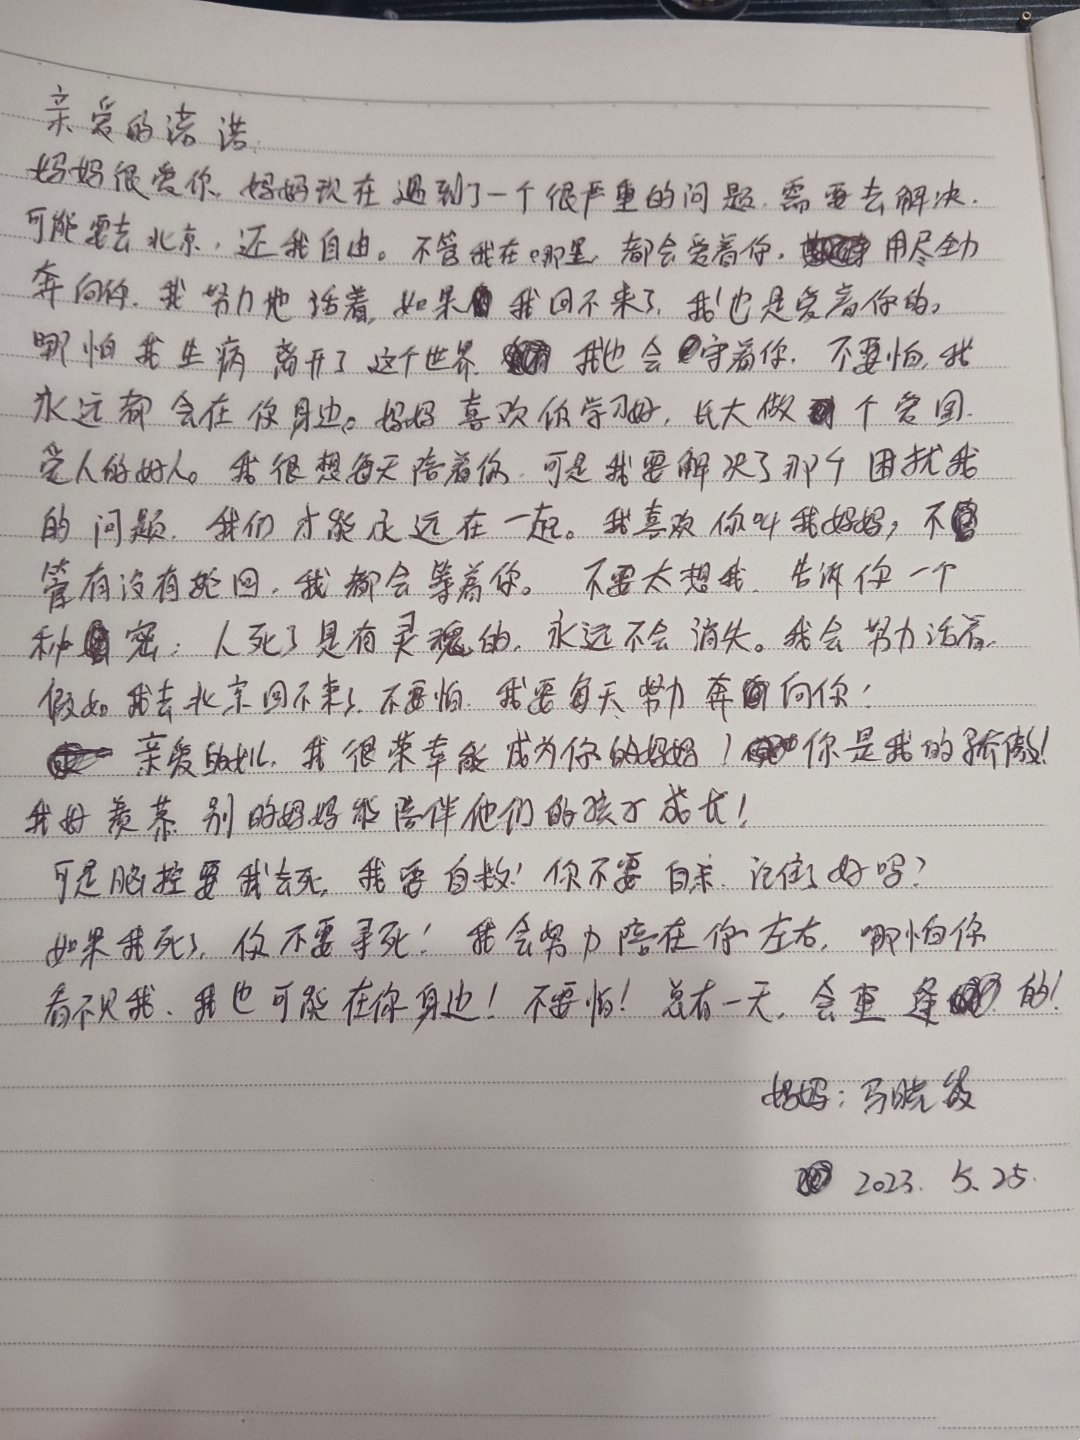 亲爱的诺诺,
妈妈很爱你,妈妈现在遇到了一个很严重的问题.需要去解决.
可能要去北京,还我自由。不管我在哪里,都会爱着你,用尽全力
奔向你.我努力地活着,如果我回不来了,我也是爱着你的。
哪怕我生病离开了这个世界 我也会守着你.不要怕,我
永远都会在你身边。妈妈喜欢你学习好,长大做个爱国.
爱人的好人。我很想每天陪着你.可是我要解决了那个困扰我
的问题.我们才能永远在一起。我喜欢你叫我妈妈,不
管有没有轮回,我都会等着你。不要太想我.告诉你一个
秘密:人死了是有灵魂的,永远不会消失。我会努力活着.
假如我去北京回不来了,不要怕.我要每天努力奔向你!
亲爱的女儿,我很荣幸能成为你的妈妈!你是我的骄傲!
我好羡慕别的妈妈能陪伴他们的孩子成长!
可是脑控要我去死,我要自救!你不要自杀.记住了好吗?
如果我死了,你不要寻死!我会努力陪在你左右,哪怕你
看不见我、我也可能在你身边!不要怕!总有一天,会重逢的!
妈妈:马晓
2023.5.25.